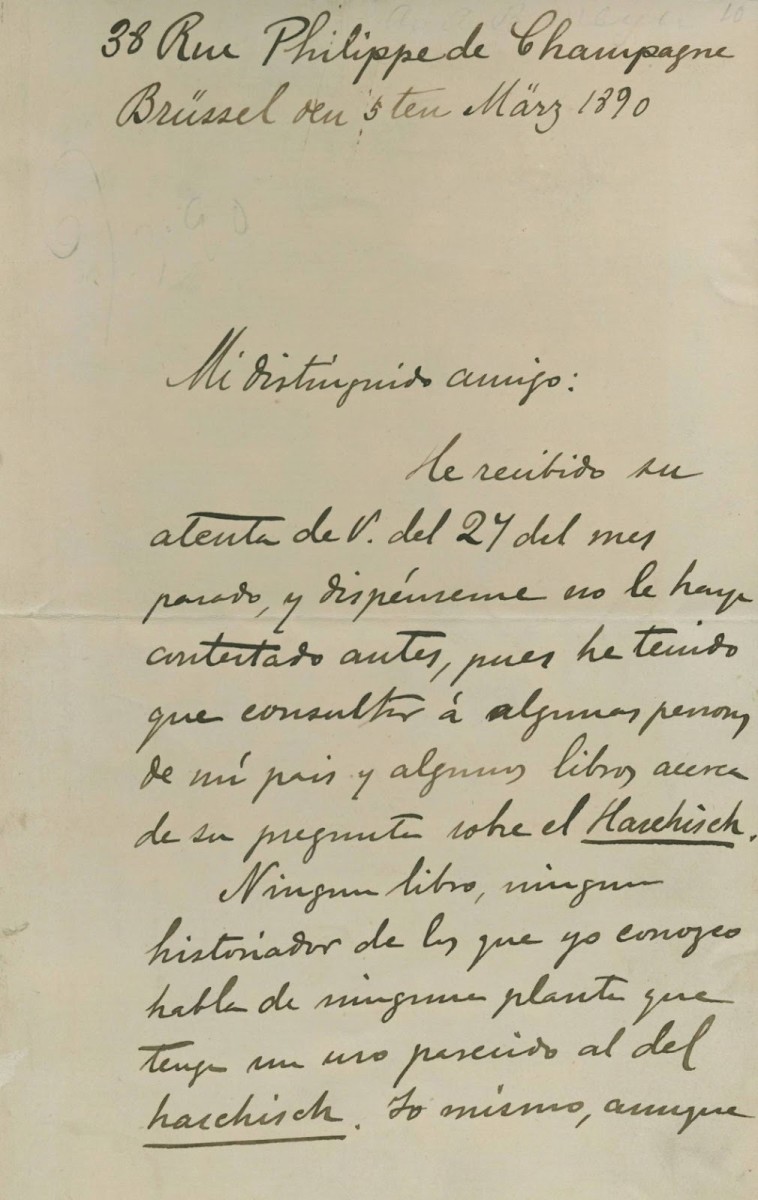 38 Rue Philippe de Champagne
Brüssel den 5ten März 1890
Mi distinguido amigo:
He recibido su
atenta de V. del 27 del mes
pasado, y dispénseme no le haya
contestado antes, pues he tenido
que consultar á algunas personas
de mi pais y algunos libros acerca
de su pregunta sobre el Haschisch.
Ningun libro, ningun
historiador de los que yo conozco
habla de ninguna planta que
tenga un uso parecido al del
haschisch. Yo mismo, aunque